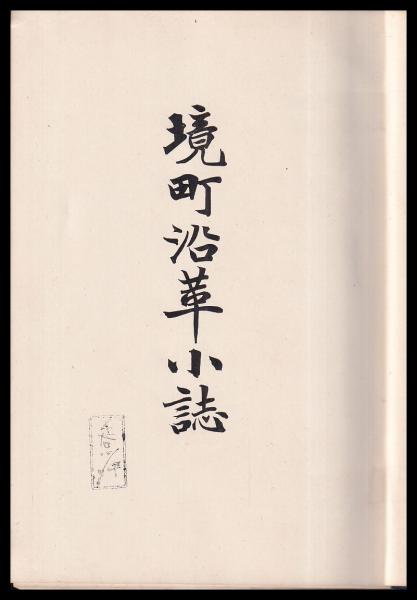 境町沿革小誌